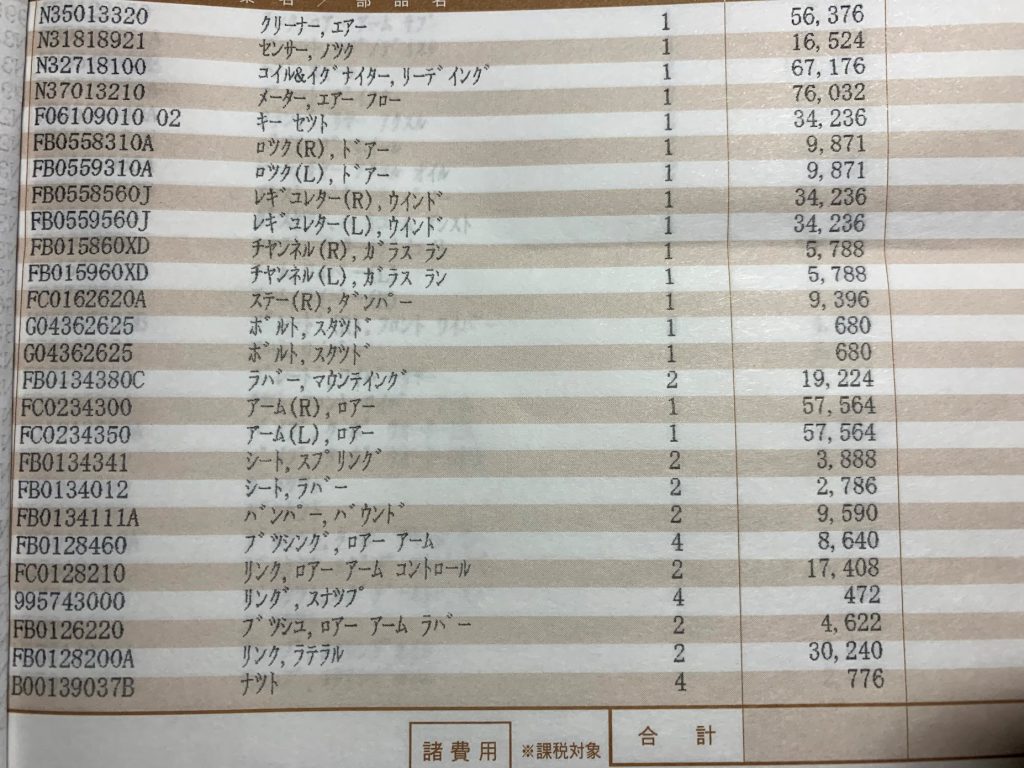 業名／部品名
N35013320 クリーナー,エアー 1 56,376
N31818921 センサー,ノツク 1 16,524
N32718100 コイル&イグナイター,リーデイング 1 67,176
N37013210 メーター,エアー フロー 1 76,032
F06109010 02 キー セツト 1 34,236
FB0558310A ロツク(R),ドアー 1 9,871
FB0559310A ロツク(L),ドアー 1 9,871
FB0558560J レギユレター(R),ウインド 1 34,236
FB0559560J レギユレター(L),ウインド 1 34,236
FB015860XD チヤンネル(R),ガラス ラン 1 5,788
FB015960XD チヤンネル(L),ガラス ラン 1 5,788
FC0162620A ステー(R),ダンパー 1 9,396
G04362625 ボルト,スタツド 1 680
G04362625 ボルト,スタツド 1 680
FB0134380C ラバー,マウンテイング 2 19,224
FC0234300 アーム(R),ロアー 1 57,564
FC0234350 アーム(L),ロアー 1 57,564
FB0134341 シート,スプリング 2 3,888
FB0134012 シート,ラバー 2 2,786
FB0134111A バンパー,バウンド 2 9,590
FB0128460 ブツシング,ロアー アーム 4 8,640
FC0128210 リンク,ロアー アーム コントロール 2 17,408
995743000 リング,スナツプ 4 472
FB0126220 ブツシユ,ロアー アーム ラバー 2 4,622
FB0128200A リンク,ラテラル 2 30,240
B00139037B ナツト 4 776
諸費用 ※課税対象 合計